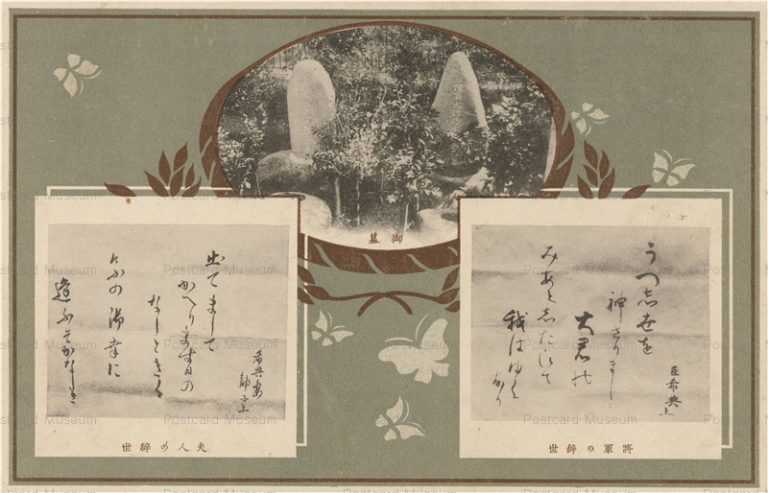 御墓
臣希典上
うつ志世を
神さりましゝ
大君乃
みあと志たひて
我はゆく
なり
將軍の辭世
希典妻
静子上
出てまして
かへります日の
なしときく
けふの御幸に
逢ふそかなしき
夫人の辭世
Postcard Museum